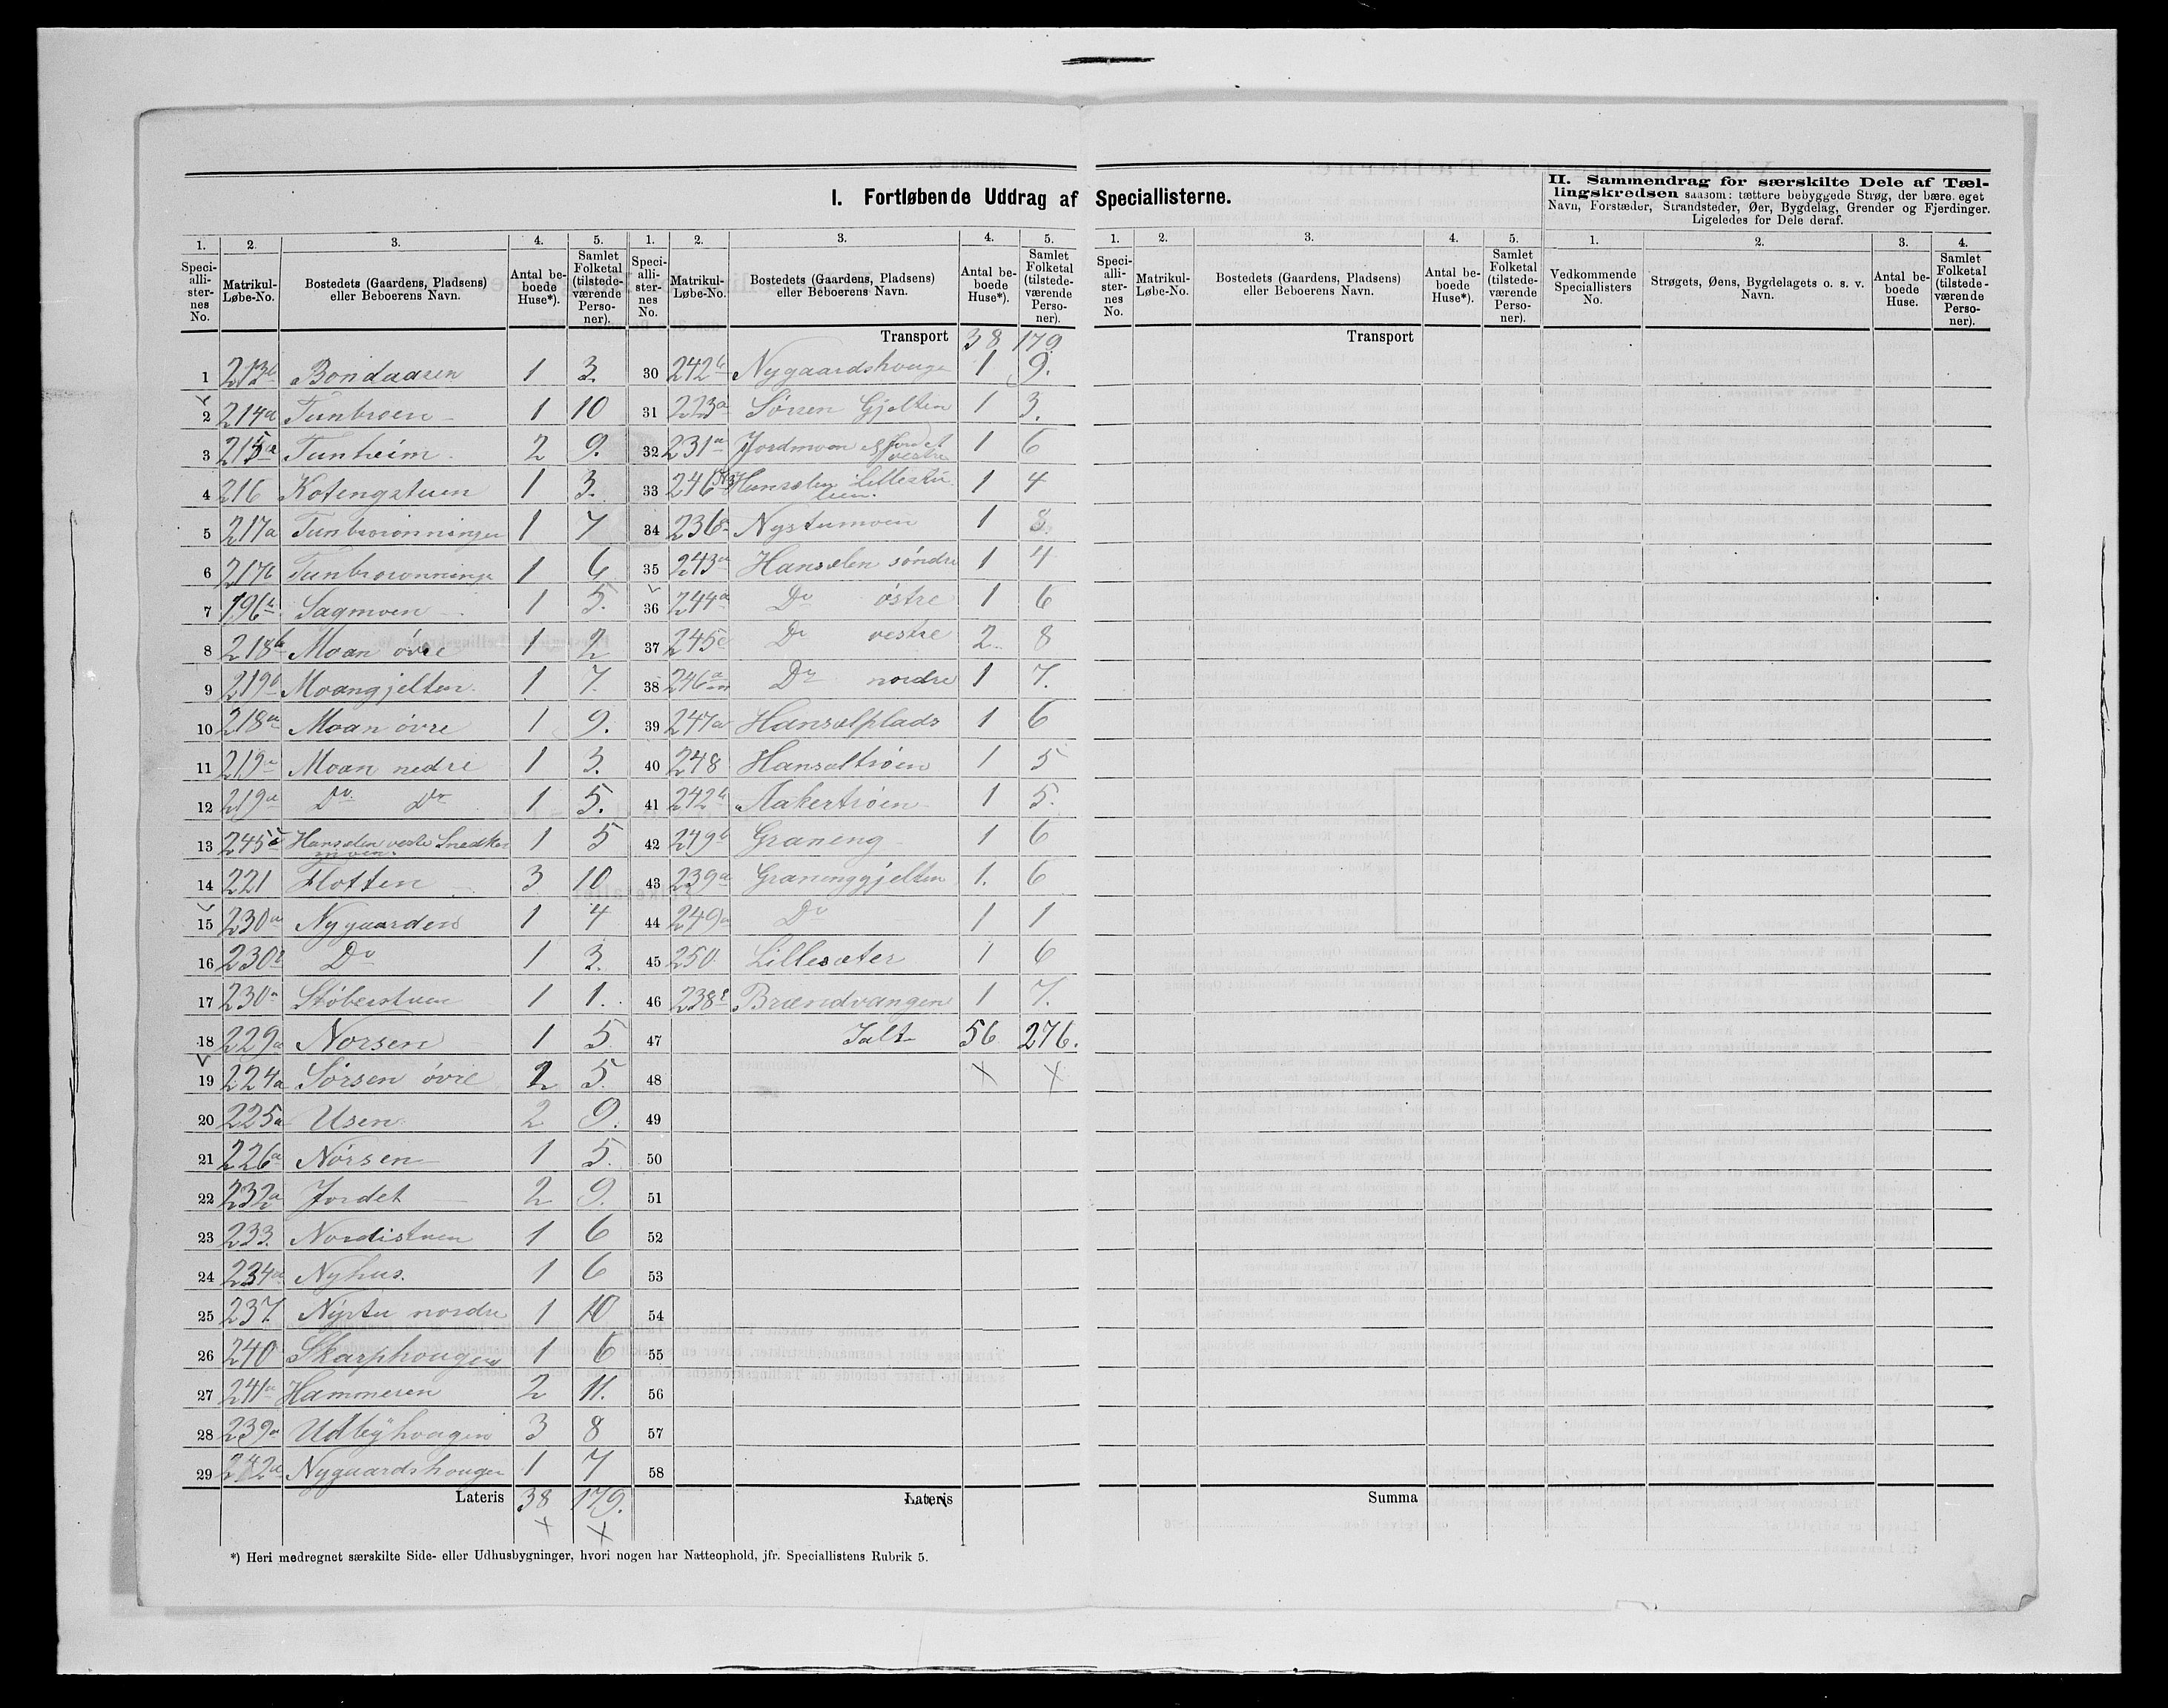 I. Fortløbende Uddrag af Speciallisterne.
II. Sammendrag for særskilte Dele af Tæl-
lingskredsen saasom: tættere bebyggede Strøg, der bære eget
Navn, Forstæder, Strandsteder, Øer, Bygdelag, Grender og Fjerdinger.
Ligeledes for Dele deraf.
1. 2. 3. 4. 5. 1. 2. 3. 4. 5. 1. 2. 3. 4. 5. 1. 2. 3. 4.
Speci-alli-ster-nes No. Matrikul-Løbe-No. Bostedets (Gaardens, Pladsens) eller Beboerens Navn. Antal be-boede Huse*). Samlet Folketal (tilstede-værende Perso-ner).
Speci-alli-ster-nes No. Matrikul-Løbe-No. Bostedets (Gaardens, Pladsens) eller Beboerens Navn. Antal be-boede Huse*). Samlet Folketal (tilstede-værende Perso-ner).
Speci-alli-ster-nes No. Matrikul-Løbe-No. Bostedets (Gaardens, Pladsens) eller Beboerens Navn. Antal be-boede Huse*). Samlet Folketal (tilstede-værende Perso-ner).
Vedkommende Speciallisters No. Strøgets, Øens, Bygdelagets o. s. v. Navn. Antal be-boede Huse. Samlet Folketal (tilstede-værende Perso-ner).
1 213b Bondaasen 1 3.
2 214a Tunbroen 1 10
3 215a Tunheim 2 9.
4 216 Kotengstuen 1 3.
5 217a Tunbrorønningen 1 7
6 217b Tunbrorønninge 1 6
7 196b Sagmoen 1 5.
8 218b Moan øvre 1 2
9 219b Moangjelten 1 7.
10 218a Moan øvre 1 9.
11 219a Moan nedre 1 3.
12 219a Do Do 1 5.
13 245c Hanselen vestre Snedker
moen. 1 5
14 221 Flotten 3 10
15 230a Nygaarden 1 4
16 230b Do 1 3.
17 230a Støberstuen 1 1.
18 229a Norsen 1 5
19 224a Sørsen øvre 2 5.
20 225a Usen 2 9.
21 226a Nørsen 1 5.
22 232a Jordet 2 9.
23 233. Nordistuen 1 6
24 234a Nyhus. 1 6
25 237. Nystu nordre 1 10
26 240 Skarphougen 1 6
27 241a Hammeren 2 11.
28 239a Udbyhougen 3 8
29 242a Nygaardshougen 1 7
Lateris 38 179.
Transport 38 179.
30 242b Nygaardshouge 1 9.
31 223a Sørsen Gjelten 1 3.
32 231a Jordmoen & Jordet
vestre 1 6
33 246 Hanselen Lillestu
lien. 1 4
34 236a Nystumoen 1 8.
35 243a Hanselen søndre 1 4
36 244a Do østre 1 6
37 245c Do vestre 2 8
38 246a Do nordre 1 7.
39 247a Hanselplads 1 6
40 248 Hanseltrøen 1 5
41 242b Aakertrøen 1 5.
42 249b Graneng 1 6
43 239a Granenggjelten 1. 6
44 249a Do 1 1
45 250 Lillesæter 1 6
46 238b Brændvangen 1 7.
47 Ialt 56 276.
48
49
50
51
52
53
54
55
56
57
58
Lateris
Transport
Summa
*) Heri medregnet særskilte Side- eller Udhusbygninger, hvori nogen har Natteophold, jfr. Speciallistens Rubrik 5.